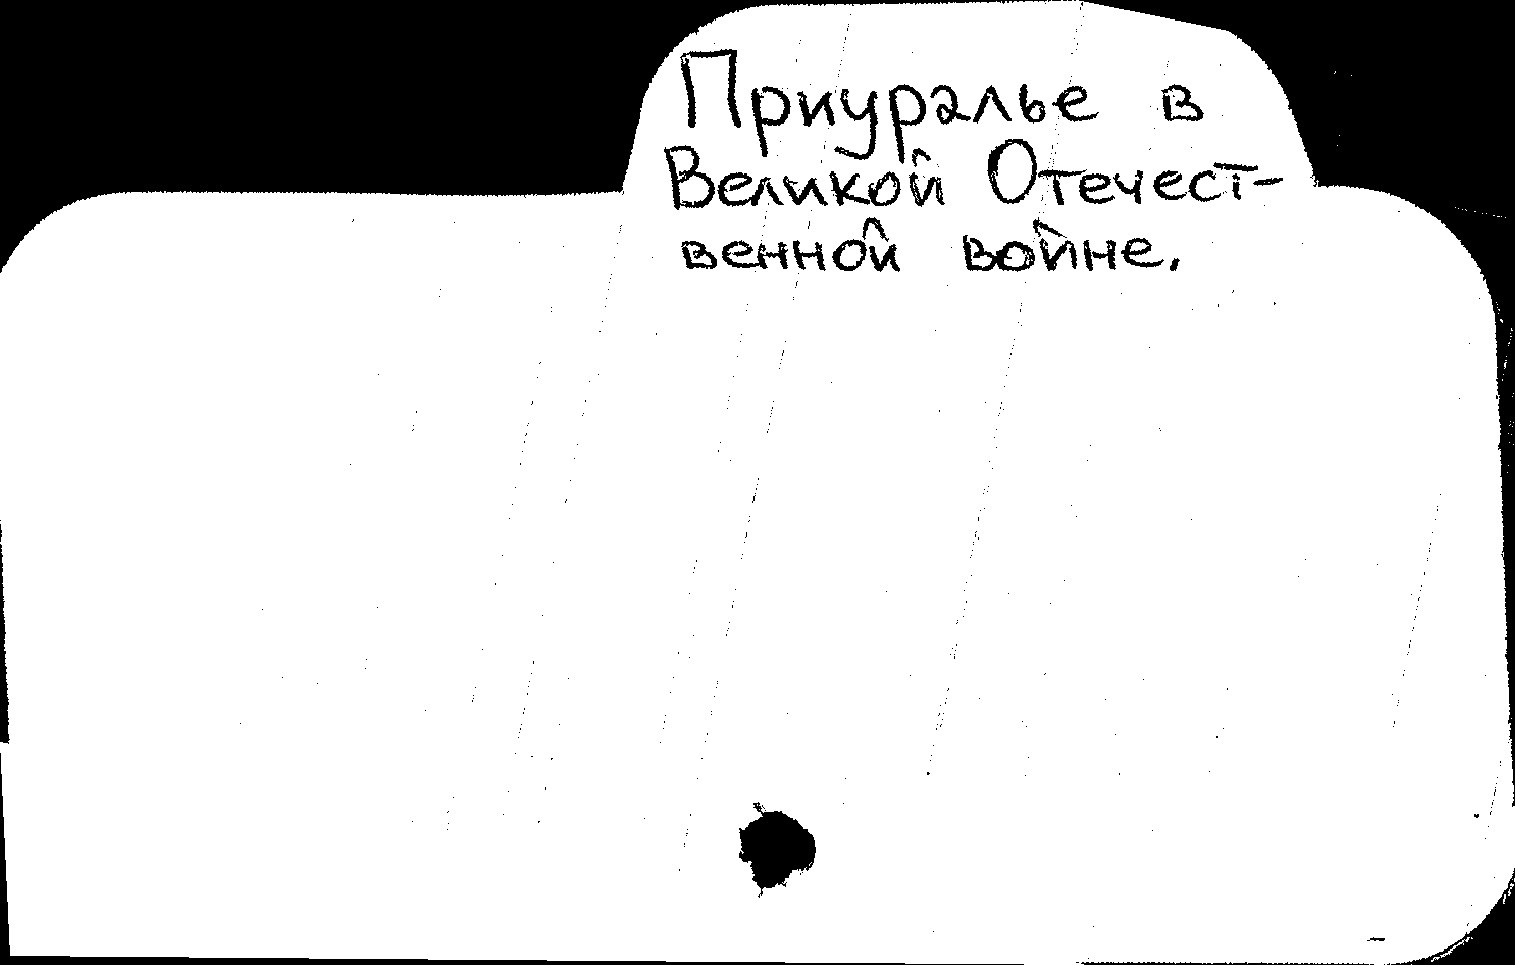 Приуралье в
Великой Отечест-
венной войне.